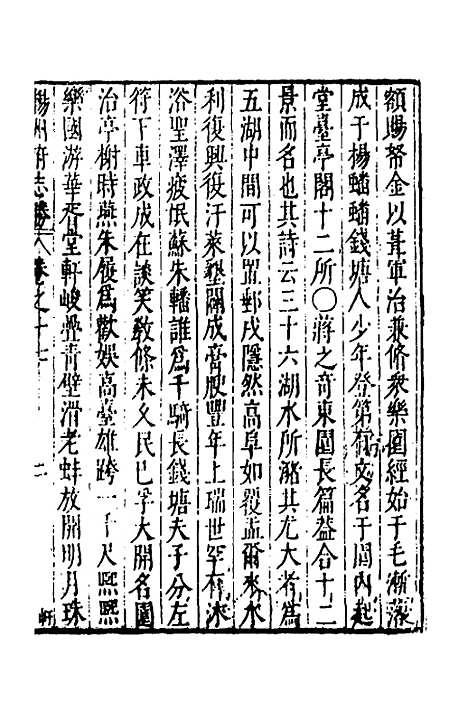 額賜帑金以葺軍治兼脩衆樂園經始于毛漸落
成于楊蟠蟠錢塘人少年登第有文名于園內起
堂臺亭閣十二所〇蔣之奇東園長篇益合十二
景而名也其詩云三十六湖水所瀦其尤大者爲
五湖中間可以置郵戍隱然高阜如覆盂爾來水
利復興復汙萊墾闢成膏腴豐年上瑞世罕有沐
浴聖澤疲氓蘇朱轓誰爲千騎長錢塘夫子分左
符下車政成在談笑敎條未久民已孚大開名園
治亭榭時燕朱履爲歡娛高臺雄跨一千尺熙熙
樂國游華胥堂軒峻疊靑壁滑老蚌放開明月珠
揚州府志 卷之十七 二
軒